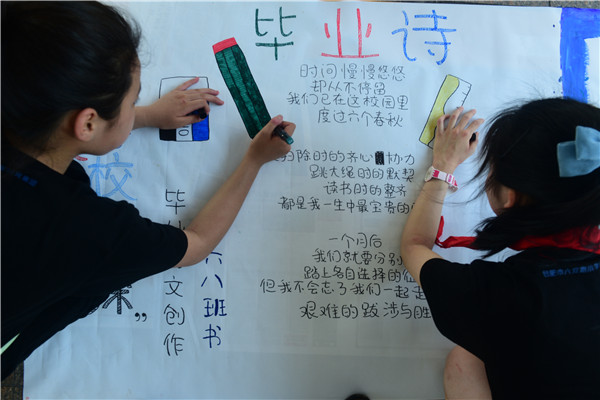 毕业诗
时间慢慢悠悠
却从不停留
我们已在这校园里
度过六个春秋
扫除时的齐心协力
跳大绳时的默契
读书时的整齐
都是我一生中最宝贵的
一个月后
我们就要分别
踏上各自选择的征
但我不会忘了我们一起走
艰难的跋涉与胜
校
毕业
文创作
六八班书
课”